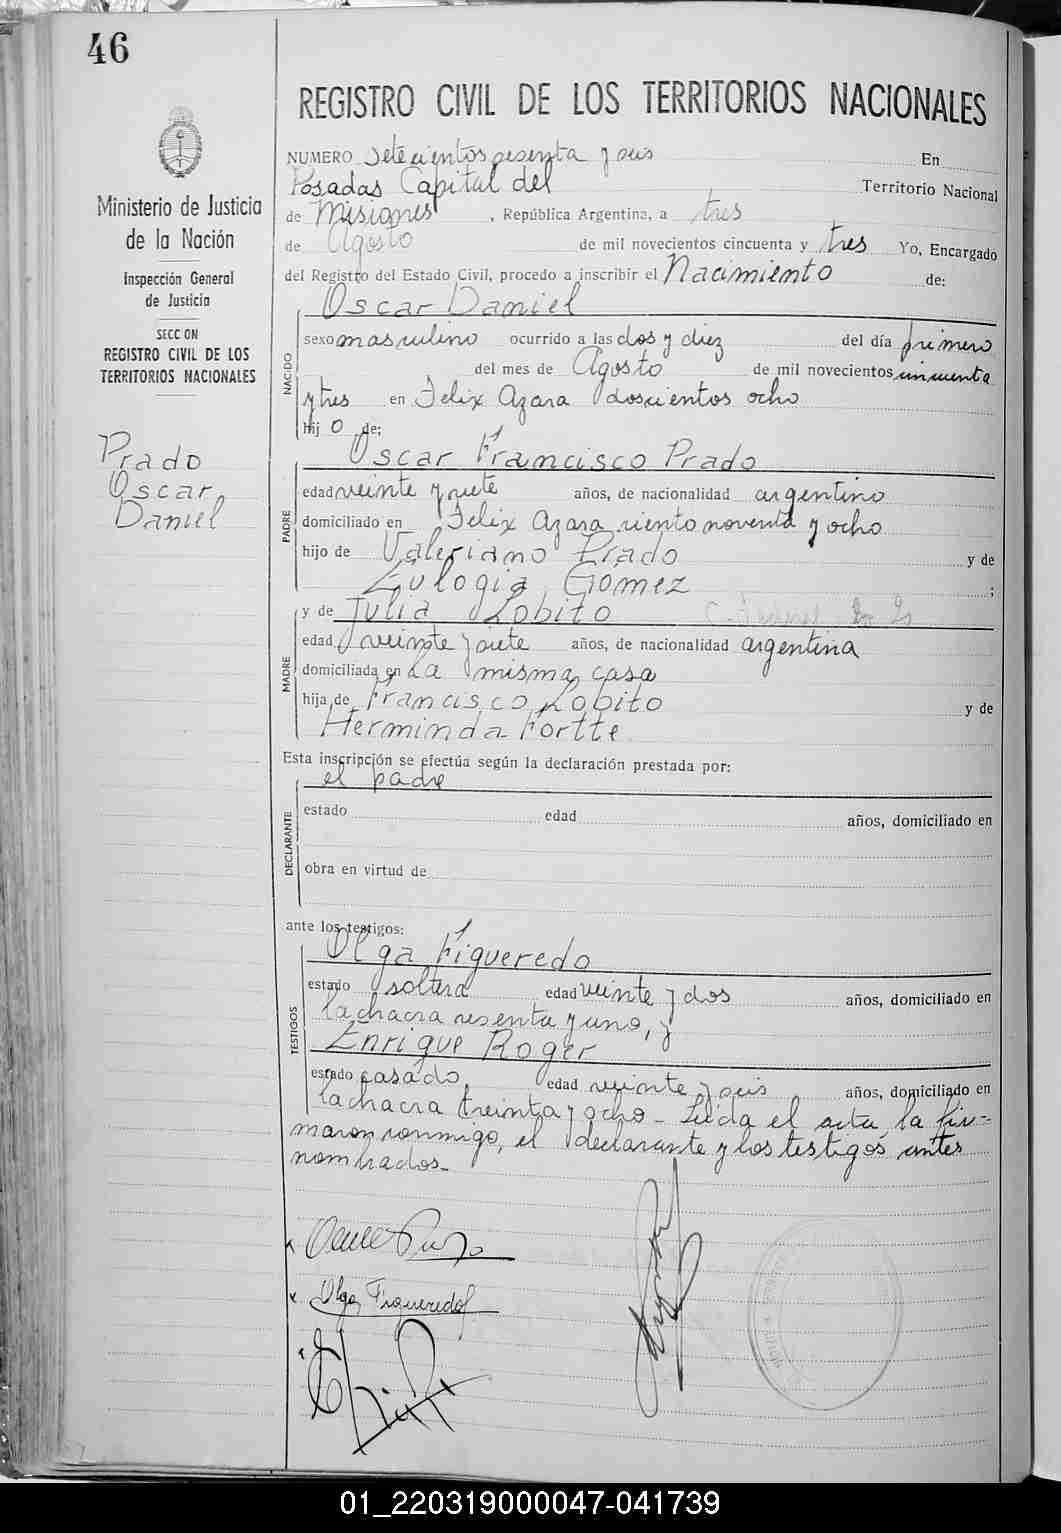 46
REGISTRO CIVIL DE LOS TERRITORIOS NACIONALES
Ministerio de Justicia
de la Nación
Inspección General
de Justicia
SECCION
REGISTRO CIVIL DE LOS
TERRITORIOS NACIONALES
Prado
Oscar
Daniel
NUMERO Setecientos sesenta y seis En
Posadas Capital del Territorio Nacional
de Misiones, República Argentina, a tres
de Agosto de mil novecientos cincuenta y tres Yo, Encargado
del Registro del Estado Civil, procedo a inscribir el Nacimiento de:
Oscar Daniel
NACIDO
sexo masculino ocurrido a las dos y diez del día primero
del mes de Agosto de mil novecientos cincuenta
y tres en Felix Azara doscientos ocho
hij o de:
Oscar Francisco Prado
PADRE
edad veinte y siete años, de nacionalidad argentino
domiciliado en Felix Azara ciento noventa y ocho
hijo de Valeriano Prado y de
Eulogia Gomez ;
y de Julia Lobito
MADRE
edad veinte y siete años, de nacionalidad argentina
domiciliada en La misma casa
hija de Francisco Lobito y de
Herminda Fortte
Esta inscripción se efectúa según la declaración prestada por:
el padre
DECLARANTE
estado edad años, domiciliado en
obra en virtud de
ante los testigos:
Olga Figueredo
TESTIGOS
estado soltera edad veinte y dos años, domiciliado en
la chacra sesenta y uno, y
Enrique Roger
estado casado edad veinte y seis años, domiciliado en
la chacra treinta y ocho - Leida el acta, la fir-
maron conmigo, el declarante y los testigos antes
nombrados.-
Olga Figueredo
01_220319000047-041739